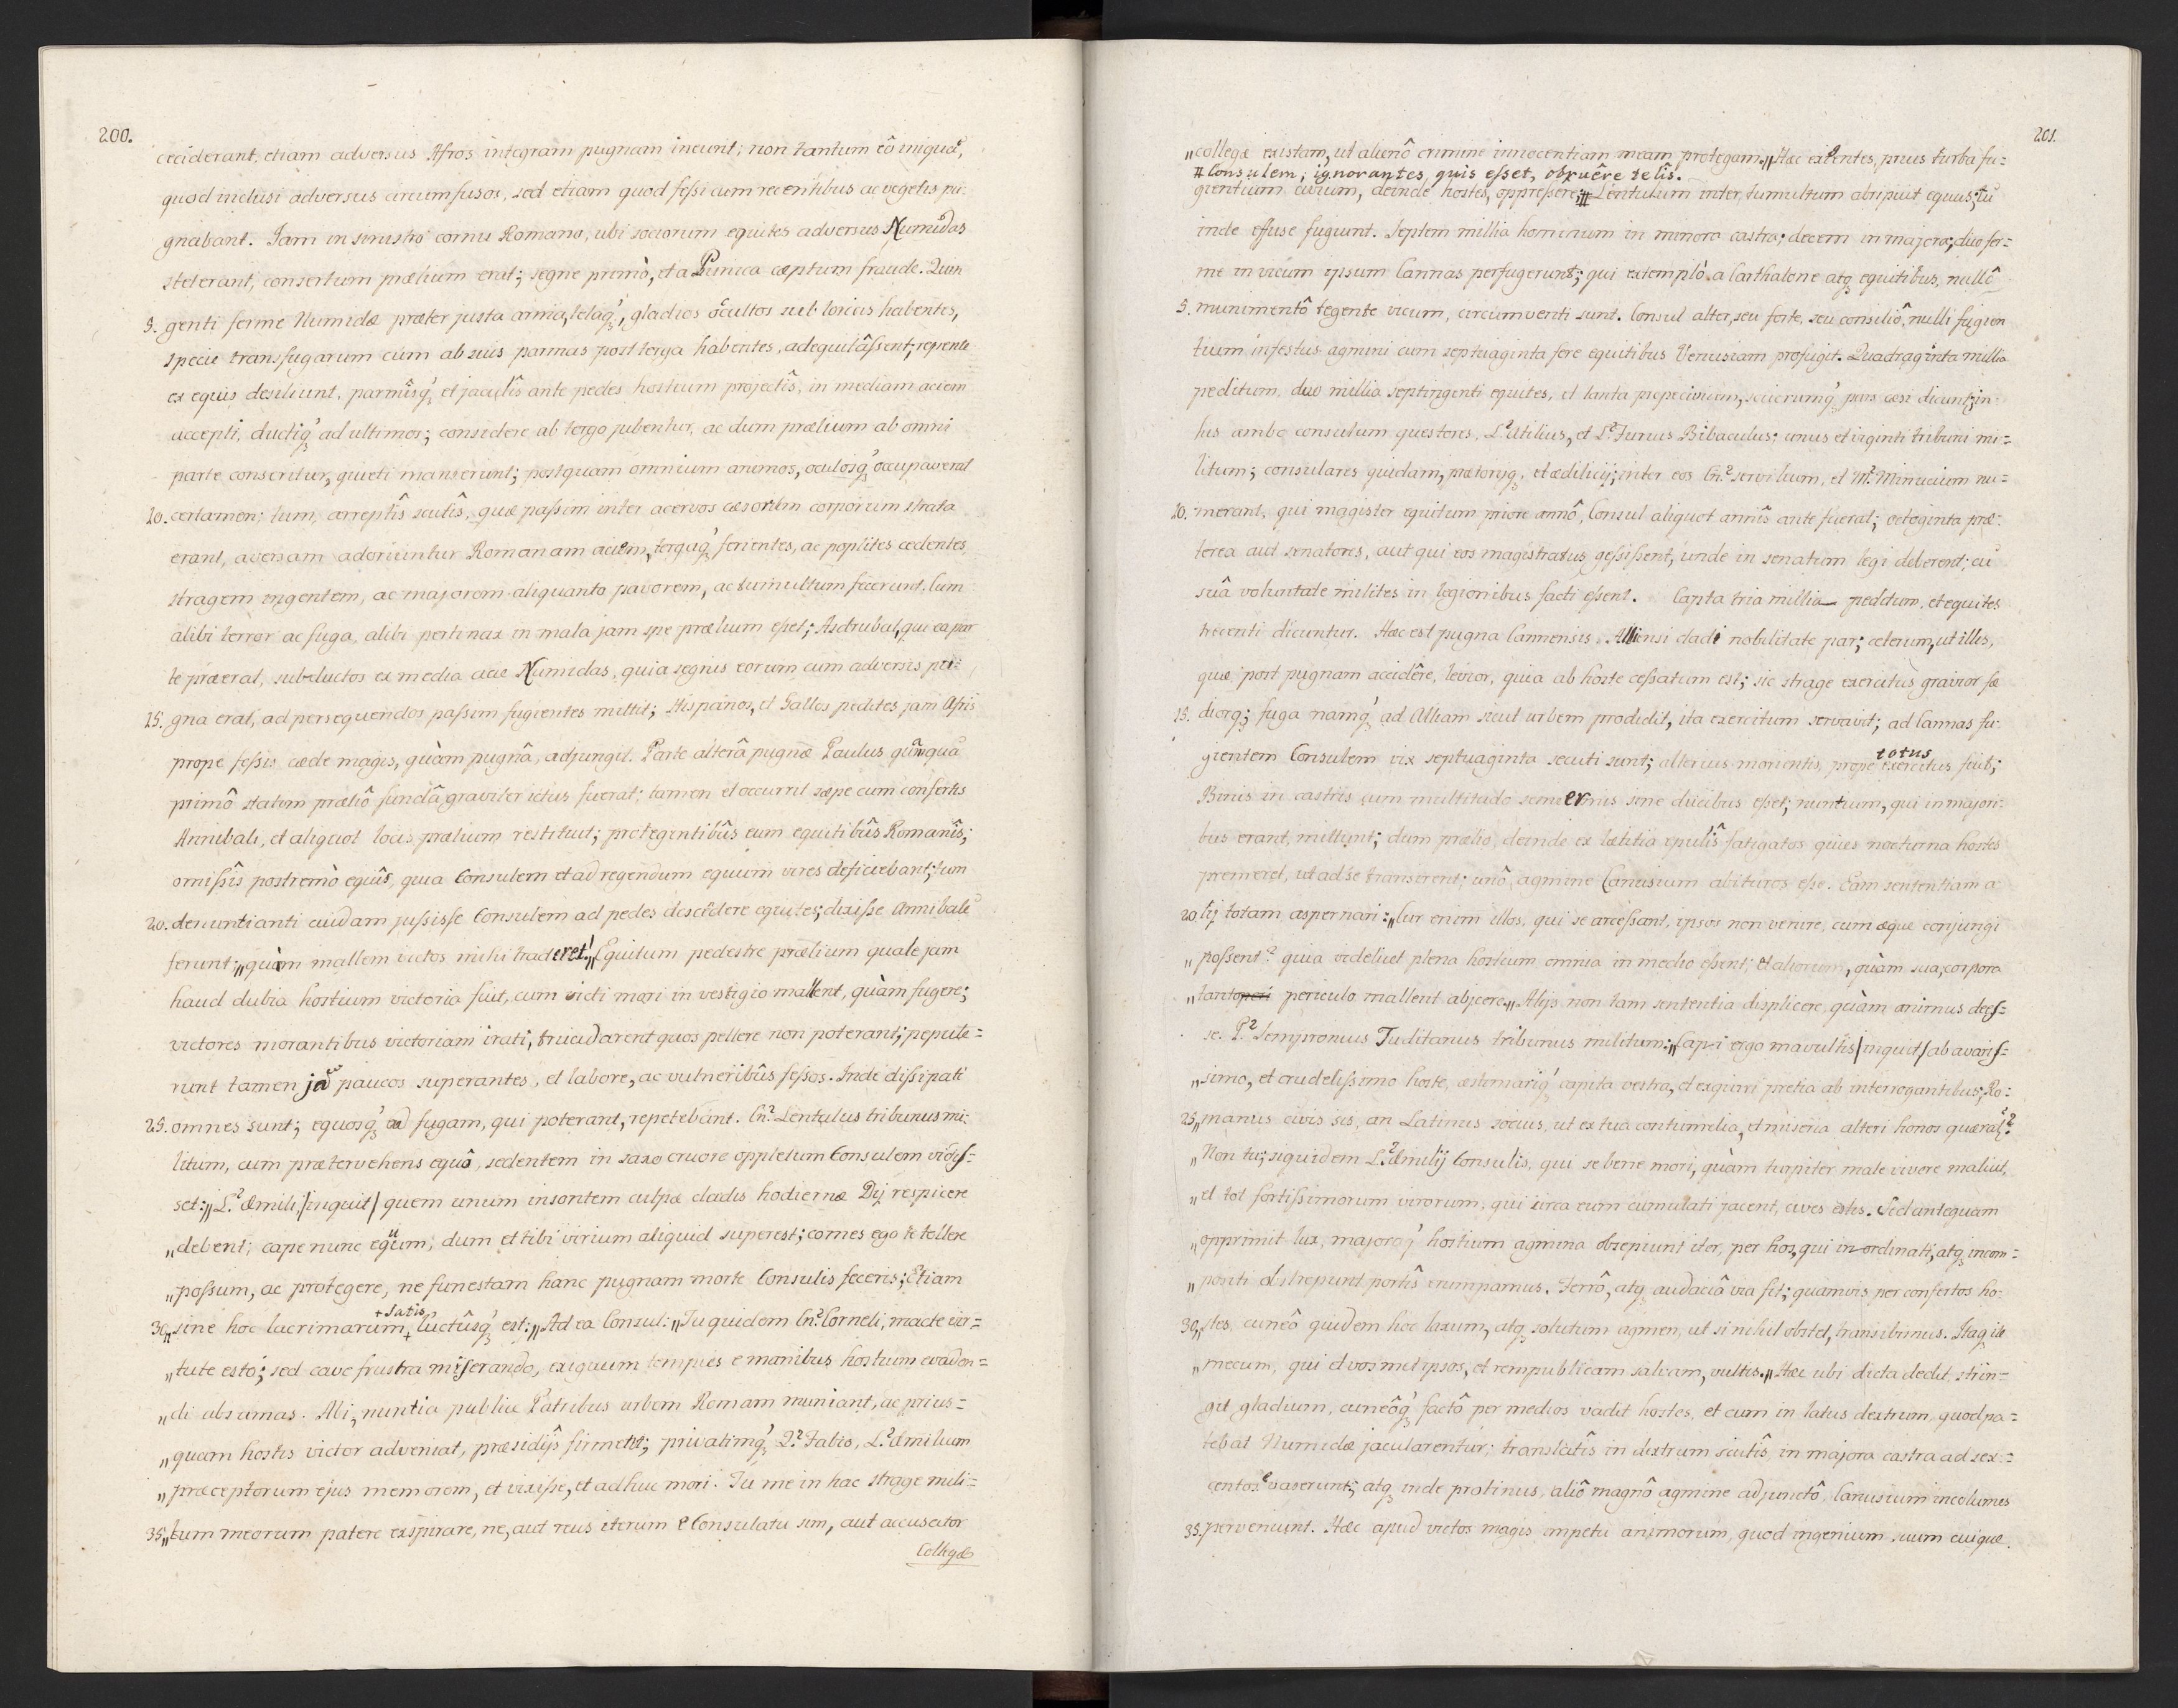 200.
ceciderant, etiam adversus Afros integram pugnam ineunt; non tantum eô iniquã,
quod inclusi adversus circumfusos, sed etiam quod fessi cum recentibus ac vegetis pu-
gnabant. Jam in sinistrô cornu Romano, ubi sociorum equites adversus Numidas
steterant, consertum prælium erat; segne primò, et a Punica cæptum fraude. Quin
5. genti ferme Numidæ præter justa arma, telaq', gladios occultos sub loricis habentes,
specie transfugarum cum ab suis parmas post terga habentes, adequitâssent; repente
ex equis desiliunt, parmisq', et jaculîs ante pedes hostium projectîs, in mediam aciem
accepti, ductiq' ad ultimos; considere ab tergo jubentur, ac dum prælium ab omni
parte conseritur, quieti manserunt; postquam omnium animos, oculosq' occupaverat
10. certamen; tum, arreptîs scutîs, quæ passim inter acervos cæsorum corporum strata
erant, aversam adoriuntur Romanam aciem, tergaq' ferientes, ac poplites cædentes
stragem ingentem, ac majorem aliquanto pavorem, ac tumultum fecerunt. Cum
alibi terror ac fuga, alibi pertinax in mala jam spe prælium esset; Asdrubal, qui ea par
te præerat, subductos ex media acie Numidas, quia segnis eorum cum adversis pu-
15. gna erat, ad persequendos passim fugientes mittit; Hispanos, et Gallos pedites jam Afris
prope fessis cæde magis, quàm pugnâ, adjungit. Parte alterâ pugnæ Paulus quãnquã
primô statim præliô fundâ graviter ictus fuerat; tamen et occurrit sæpe cum confertis
Annibali, et aliquot locis prælium restituit; protegentibûs eum equitibûs Romanîs;
omissîs postremò equîs, quia Consulem et ad regendum equum vires deficiebant; tum
20. denuntianti cuidam jussisse Consulem ad pedes descēdere equites; dixisse Annibalē
ferunt: „quàm mallem victos mihi traderet!„ Equitum pedestre prælium quale jam
haud dubia hostium victoria fuit, cum victi mori in vestigio mallent, quàm fugere;
victores morantibus victoriam irati, trucidarent quos pellere non poterant; pepule=
runt tamen jã paucos superantes, et labore, ac vulneribûs fessos. Inde dissipati
25. omnes sunt; equosq' ad fugam, qui poterant, repetebant. Cn? Lentulus tribunus mi-
litum, cum prætervehens equô, sedentem in saxo cruore oppletum Consulem vidis=
set: „L? Æmili, /inquit/ quem unum insontem culpæ cladis hodiernæ Dij respicere
„debent; cape nunc equum, dum et tibi virium aliquid superest; comes ego te tollere
„possum, ac protegere, ne funestam hanc pugnam morte Consulis feceris; Etiam
+satis
30. „sine hoc lacrimarum + luctûsq' est: „Ad ea Consul: „Tu quidem Cn? Corneli, macte vir=
„tute esto; sed cave frustra miserando, exiguum tempus e manibus hostium evaden=
„di absumas. Abi, nuntia publice Patribus urbem Romam muniant, ac prius=
„quam hostis victor adveniat, præsidijs firment; privatimq' Q? Fabio, L? Æmilium
„præceptorum ejus memorem, et vixisse, et adhuc mori. Tu me in hac strage mili=
35. „tum meorum patere exspirare, ne, aut reus iterum e Consulatu sim, aut accusator
Collegæ
201.
„collegæ existam, ut alienô crimine innocentiam meam protegam.„ Hæc agentes, prius turba fu=
# Consulem; ignorantes quis esset, obruêre telîs.
gientium civium, deinde hostes, oppressere; # Lentulum inter tumultum abripuit equus; tũ
inde effuse fugiunt. Septem millia hominum in minora castra; decem in majora; duo fer=
me in vicum ipsum Cannas perfugerunt; qui extemplò a Carthalone atq equitibus, nullô
5. munimentô tegente vicum, circumventi sunt. Consul alter, seu forte, seu consiliô, nulli fugien
tium infestus agmini cum septuaginta fere equitibus Venusiam profugit. Quadraginta millia
peditum, duo millia septingenti equites, et tanta prope civium, sociorumq' pars cæsi dicuntur; in
his ambo consulum quæstores, L? Atilius, et L? Furius Bibaculus; unus et viginti tribuni mi=
litum; consulares quidam, prætorijq, et ædilicij; inter eos Cn? Servilium, et M? Minucium nu=
10. merant, qui magister equitum priore annô, Consul aliquot annîs ante fuerat; octoginta præ-
terea aut senatores, aut qui eos magistratus gessissent, unde in senatum legi deberent; cũ
suâ voluntate milites in legionibus facti essent. Capta tria millia peditum, et equites
trecenti dicuntur. Hæc est pugna Cannensis, Alliensi cladi nobilitate par; ceterum, ut illis,
quæ post pugnam accidêre, levior, quia ab hoste cessatum est; sic strage exercitus gravior fæ
15. diorq; fuga namq' ad Alliam sicut urbem prodidit, ita exercitum servavit; ad Cannas fu-
totus
gientem Consulem vix septuaginta secuti sunt; alterius morientis prope exercitus fuit;
Binis in castris cum multitudo semiermis sine ducibus esset; nuntium, qui in majori-
bus erant, mittunt; dum prælio, deinde ex lætitia epulîs fatigatos quies nocturna hostes
premeret, ut ad se transirent; unô agmine Canusium abituros esse. Eam sententiam a-
20. lij totam aspernari: „Cur enim illos, qui se arcessant, ipsos non venire, cum æque conjungi
„possent? quia videlicet plena hostium omnia in medio essent; et aliorum, quàm sua, corpora
„tanto periculo mallent abjicere.„ Alijs non tam sententia displicere, quàm animus dees=
se. P? Sempronius Tuditanus tribunus militum: „Capi ergo mavultis /inquit/ ab avaris=
„simo, et crudelissimo hoste, æstimariq' capita vestra, et exquiri pretia ab interrogantibus; Ro=
25. „manus civis sis, an Latinus socius, ut ex tua contumelia, et miseria alteri honos quæratr?
„Non tu; siquidem L? Æmilij Consulis, qui se bene mori, quàm turpiter male vivere maluit,
„et tot fortissimorum virorum, qui circa eum cumulati jacent, cives estis. Sed antequam
„opprimit lux, majoraq' hostium agmina obsepiunt iter, per hos, qui inordinati, atq incom=
„positi obstrepunt portîs erumpamus. Ferrô, atq audaciâ via fit; quamvis per confertos ho=
30. „stes, cuneô quidem hoc laxum, atq solutum agmen, ut si nihil obstet, transibimus. Itaq ite
„mecum, qui et vosmetipsos, et rempublicam salvam, vultis.„ Hæc ubi dicta dedit, strin=
git gladium, cuneôq' factô per medios vadit hostes, et cum in latus dextrum, quod pa=
tebat Numidæ jacularentur; translatîs in dextrum scutîs, in majora castra ad sex=
centos evaserunt; atq inde protinus, aliô magnô agmine adjunctô, Canusium incolumes
35. perveniunt. Hæc apud victos magis impetu animorum, quod ingenium suum cuique